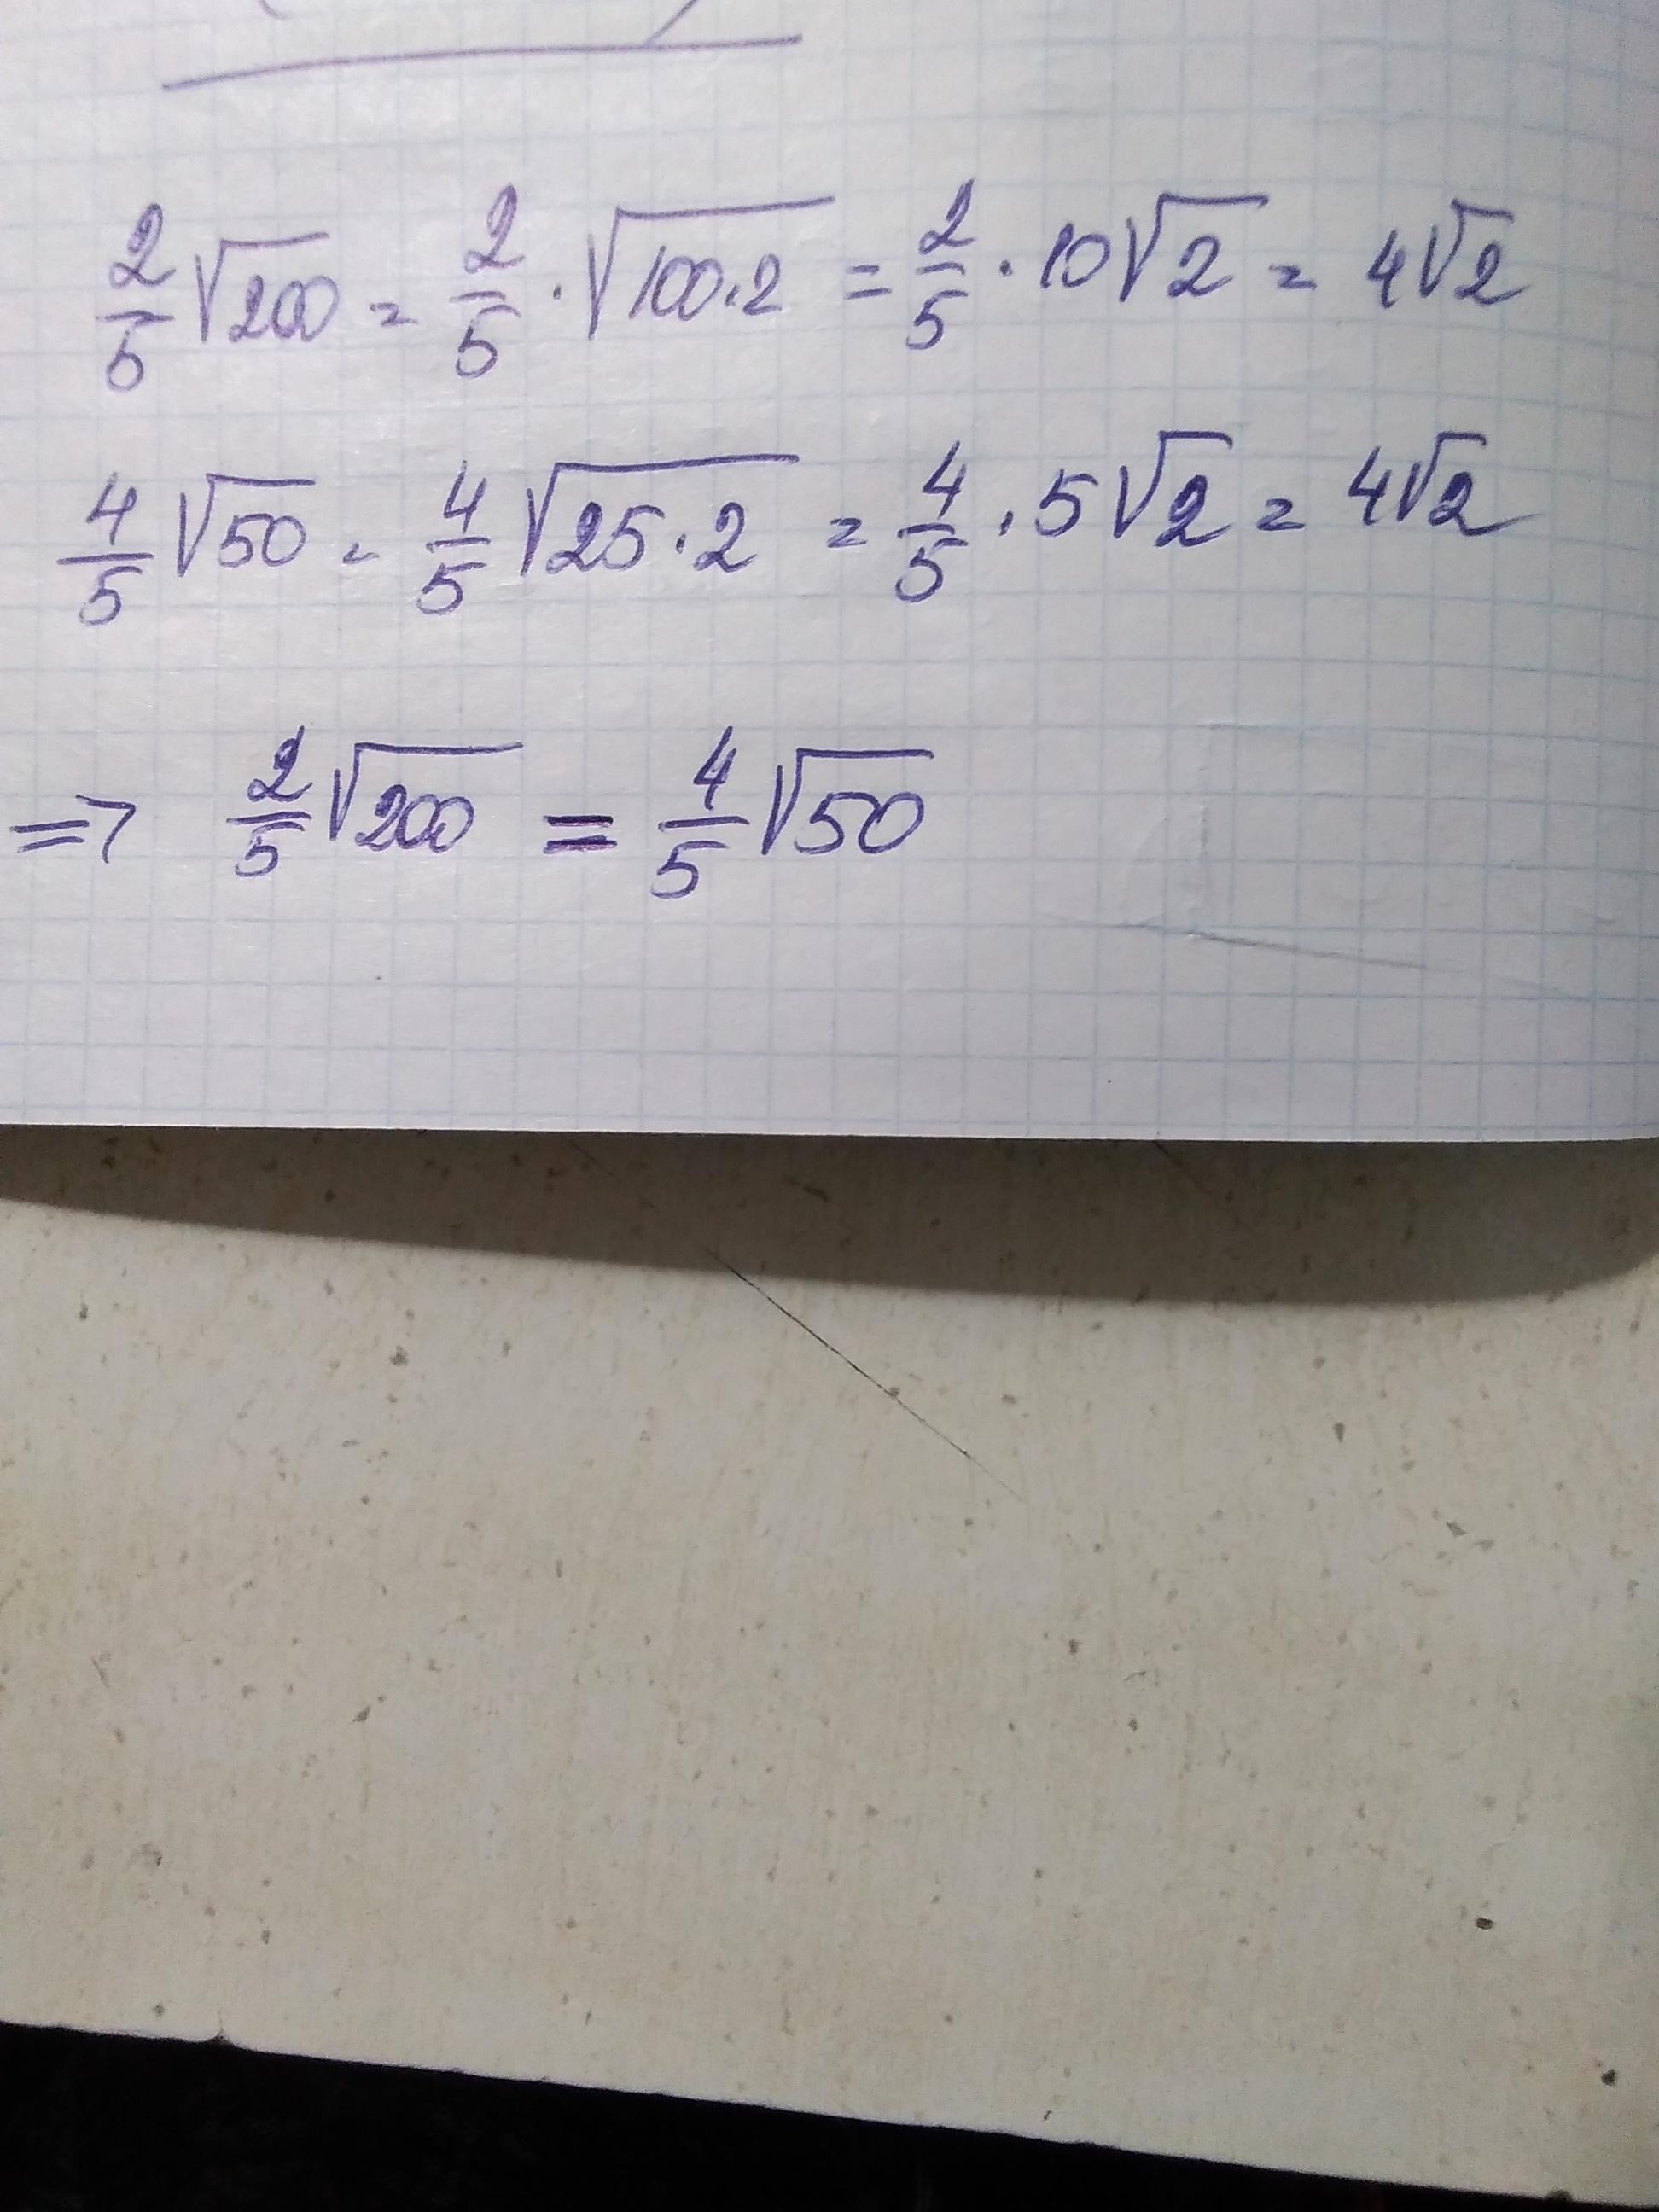 2/5 √200 = 2/5 · √100·2 = 2/5 · 10√2 = 4√2
4/5 √50 = 4/5 √25·2 = 4/5 · 5√2 = 4√2
=> 2/5 √200 = 4/5 √50